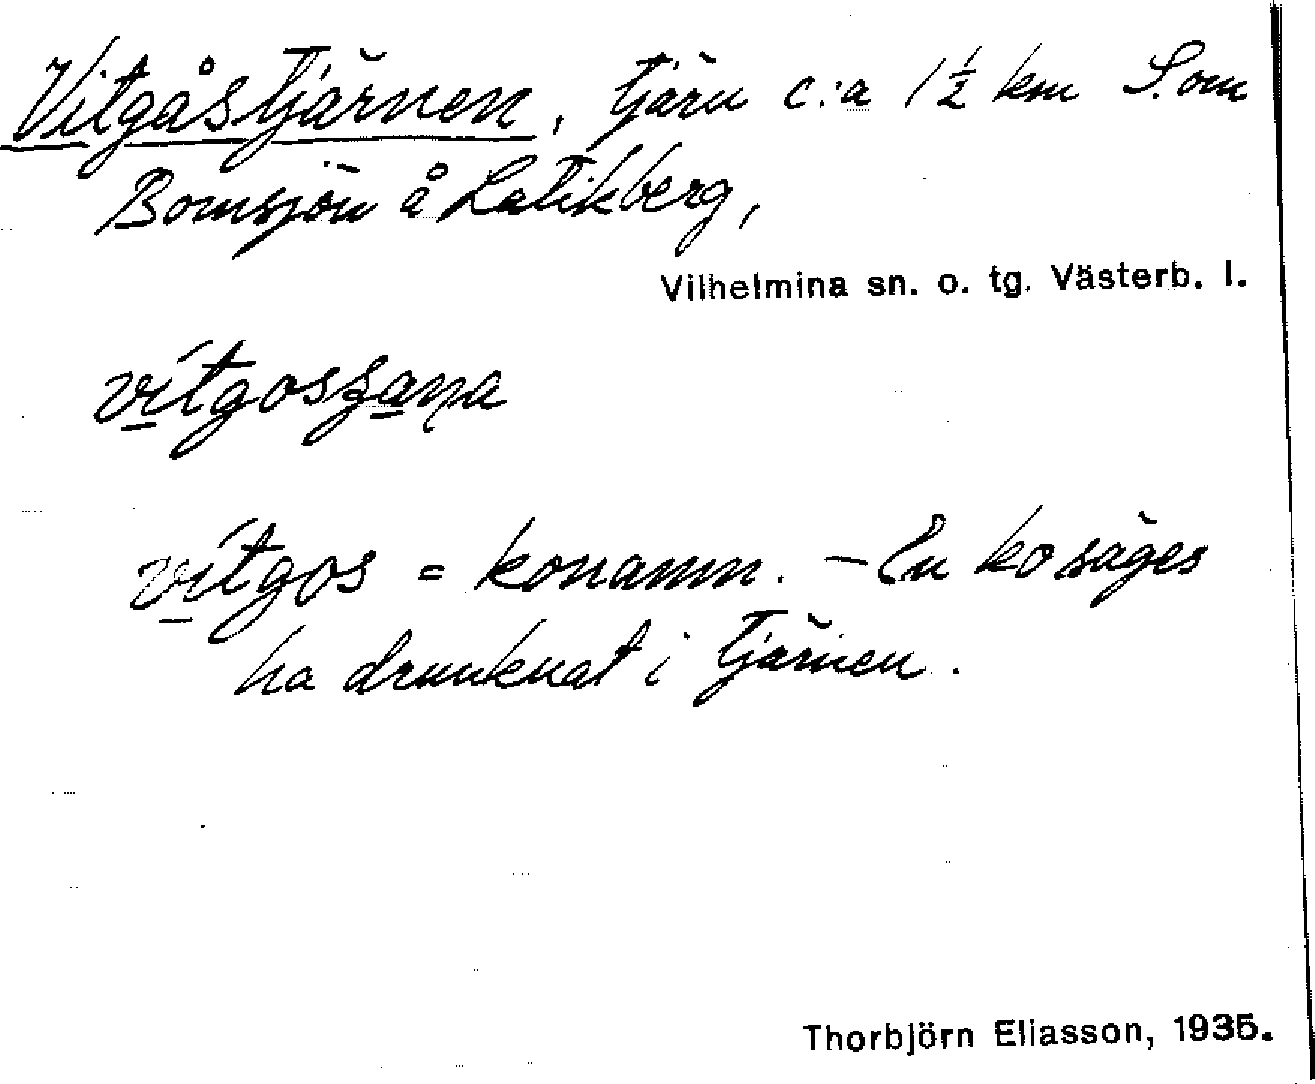 Vitgåstjärnen, tjärn c:a 1½ km S. om
Bomsjön å Latikberg,
Vilhelmina sn. o. tg. Västerb. l.
vitgos = konamn. – En ko säges
ha drunknat i tjärnen.
Thorbjörn Eliasson, 1935.